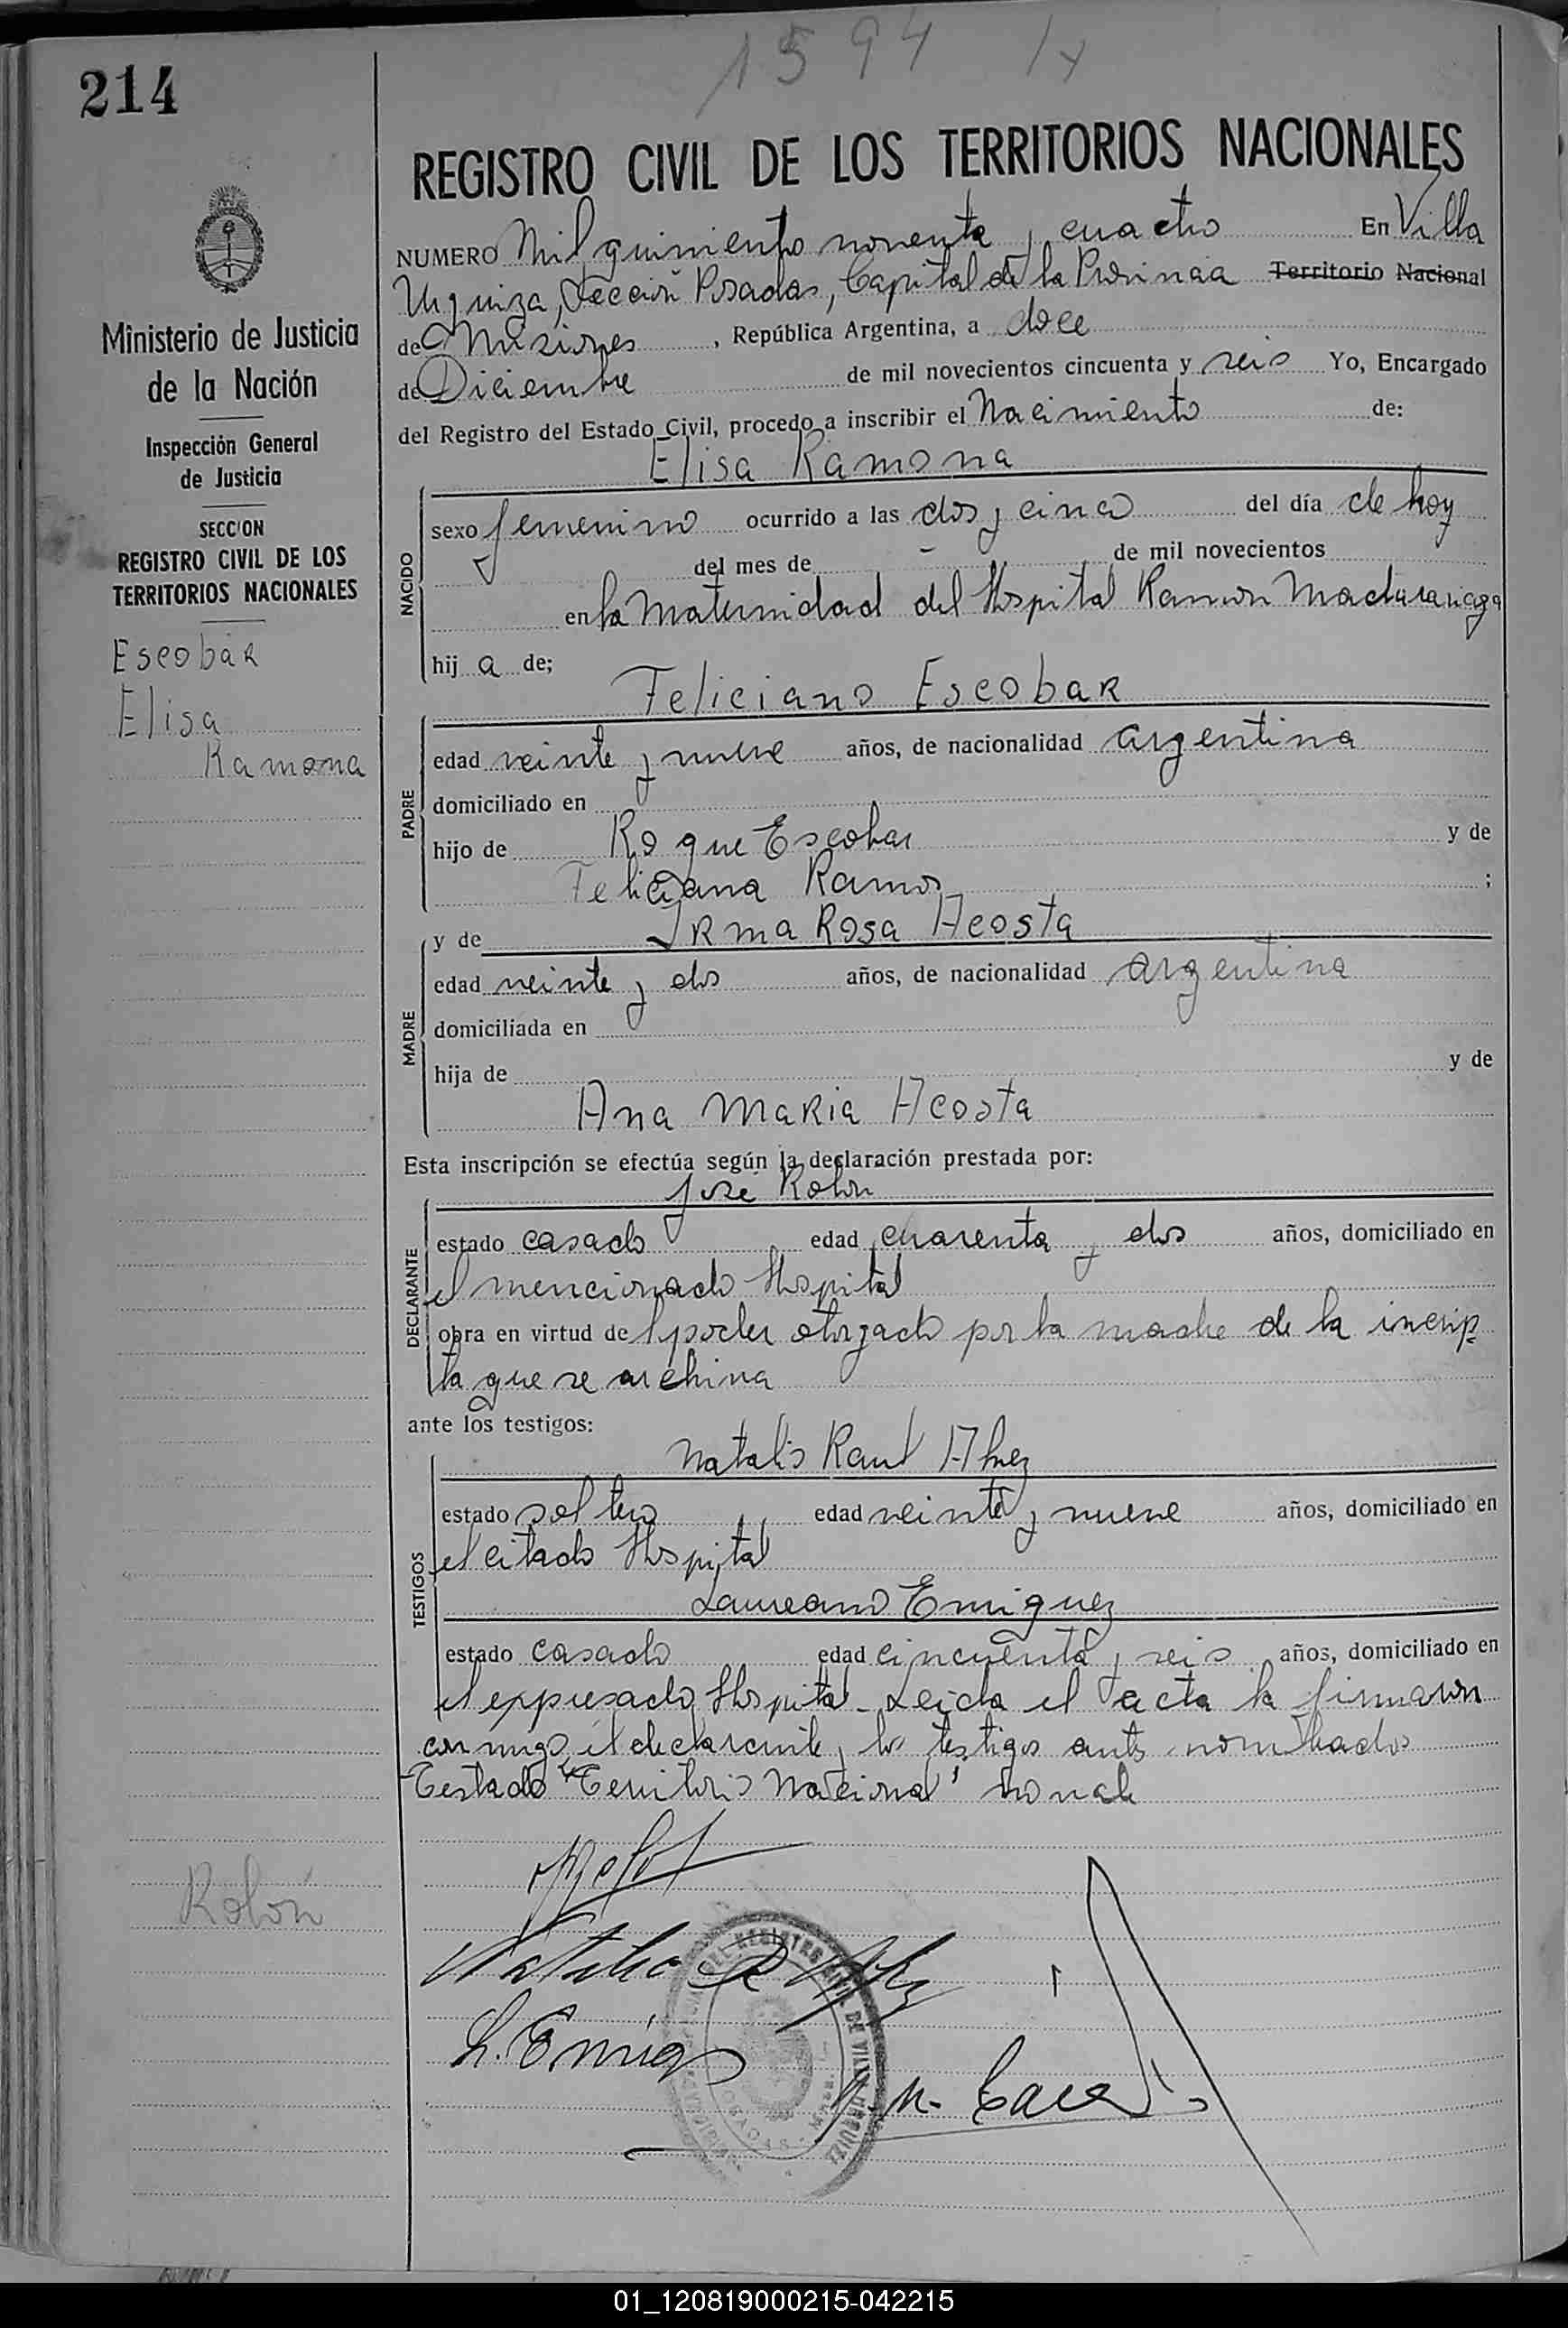 1594 
214
REGISTRO CIVIL DE LOS TERRITORIOS NACIONALES
NUMERO Mil quinientos noventa y cuatro En Villa
Urquiza, Sección Posadas, Capital de la Provincia Territorio Nacional
de Misiones, República Argentina, a doce
de Diciembre de mil novecientos cincuenta y seis Yo, Encargado
del Registro del Estado Civil, procedo a inscribir el Nacimiento de:
Elisa Ramona
Ministerio de Justicia
de la Nación
Inspección General
de Justicia
SECCION
REGISTRO CIVIL DE LOS
TERRITORIOS NACIONALES
Escobar
Elisa
Ramona
NACIDO
sexo femenino ocurrido a las dos y cinco del día de hoy
del mes de - de mil novecientos
en la Maternidad del Hospital Ramon Madariaga
hij a de;
Feliciano Escobar
PADRE
edad veinte y nueve años, de nacionalidad argentina
domiciliado en
hijo de Roque Escobar y de
Feliciana Ramos ;
MADRE
y de Irma Rosa Acosta
edad veinte y dos años, de nacionalidad argentina
domiciliada en
hija de y de
Ana Maria Acosta
Esta inscripción se efectúa según la declaración prestada por:
José Rolon
DECLARANTE
estado casado edad cuarenta y dos años, domiciliado en
el mencionado Hospital
obra en virtud del poder otorgado por la madre de la inscrip-
ta que se archiva
ante los testigos:
Natalio Raul
TESTIGOS
estado soltero edad veinte y nueve años, domiciliado en
el citado Hospital
Laureano Enriquez
estado casado edad cincuenta y seis años, domiciliado en
el expresado Hospital - Leida el acta la firmaron
conmigo, el declarante y los testigos antes nombrados
Testado "Territorio Nacional" no vale
Rolón
Natalio R
L. Enriq
REGISTRO CIVIL DE VILLA URQUIZA
01_120819000215-042215